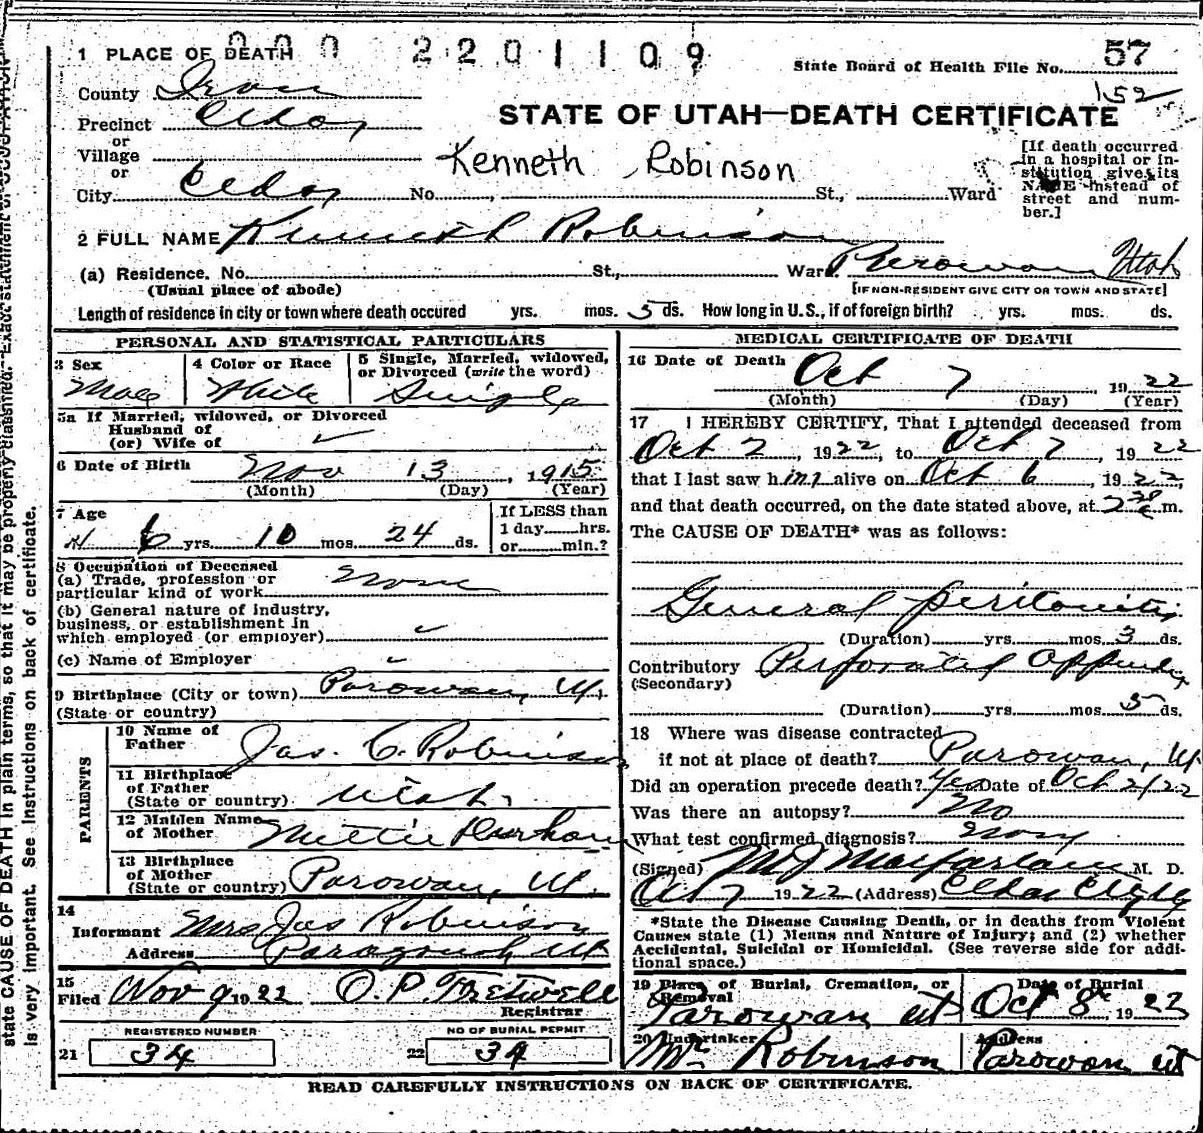 000 2201109
1 PLACE OF DEATH
State Board of Health File No. 57
152
County Iron
STATE OF UTAH—DEATH CERTIFICATE
Precinct Cedar
or
Village
or
Kenneth Robinson
[If death occurred in a hospital or institution give its NAME instead of street and number.]
City Cedar No. , St., Ward
2 FULL NAME Kenneth Robinson
(a) Residence. No. St., Ward. Parowan Utah
(Usual place of abode)
[IF NON-RESIDENT GIVE CITY OR TOWN AND STATE]
Length of residence in city or town where death occured yrs. mos. 5 ds. How long in U.S., if of foreign birth? yrs. mos. ds.
PERSONAL AND STATISTICAL PARTICULARS
3 Sex
Male
4 Color or Race
White
5 Single, Married, widowed, or Divorced (write the word)
Single
5a If Married, widowed, or Divorced
Husband of
(or) Wife of
6 Date of Birth Nov 13, 1915
(Month) (Day) (Year)
7 Age
6 yrs. 10 mos. 24 ds.
If LESS than
1 day hrs.
or min.?
8 Occupation of Deceased
(a) Trade, profession or
particular kind of work None
(b) General nature of industry,
business, or establishment in
which employed (or employer)
(c) Name of Employer
9 Birthplace (City or town) Parowan, Ut.
(State or country)
PARENTS
10 Name of
Father Jas. C. Robinson
11 Birthplace
of Father
(State or country) Utah
12 Maiden Name
of Mother Mettie
13 Birthplace
of Mother
(State or country) Parowan, Ut.
14
Informant Mrs Jas Robinson
Address Paragonah Ut
15
Filed Nov 9 1922 O. P. Fretwell
Registrar
REGISTERED NUMBER
21 34
NO OF BURIAL PERMIT
22 34
MEDICAL CERTIFICATE OF DEATH
16 Date of Death Oct 7, 1922
(Month) (Day) (Year)
17 I HEREBY CERTIFY, That I attended deceased from
Oct 2, 1922, to Oct 7, 1922
that I last saw him alive on Oct 6, 1922,
and that death occurred, on the date stated above, at 2 m.
The CAUSE OF DEATH* was as follows:
General peritonitis
(Duration) yrs. mos. 3 ds.
Contributory Perforated Appendix
(Secondary)
(Duration) yrs. mos. 5 ds.
18 Where was disease contracted
if not at place of death? Parowan, Ut.
Did an operation precede death? Yes Date of Oct 2/22
Was there an autopsy? No
What test confirmed diagnosis?
(Signed) M J Macfarlane M. D.
Oct 7 1922 (Address) Cedar City
*State the Disease Causing Death, or in deaths from Violent
Causes state (1) Means and Nature of Injury; and (2) whether
Accidental, Suicidal or Homicidal. (See reverse side for addi-
tional space.)
19 Place of Burial, Cremation, or
Removal
Parowan ut
Date of Burial
Oct 8, 1922
20 Undertaker
Mr Robinson
Address
Parowan ut
READ CAREFULLY INSTRUCTIONS ON BACK OF CERTIFICATE.
state CAUSE OF DEATH in plain terms, so that it may be properly classified. Exact statement of OCCUPATION
is very important. See instructions on back of certificate.